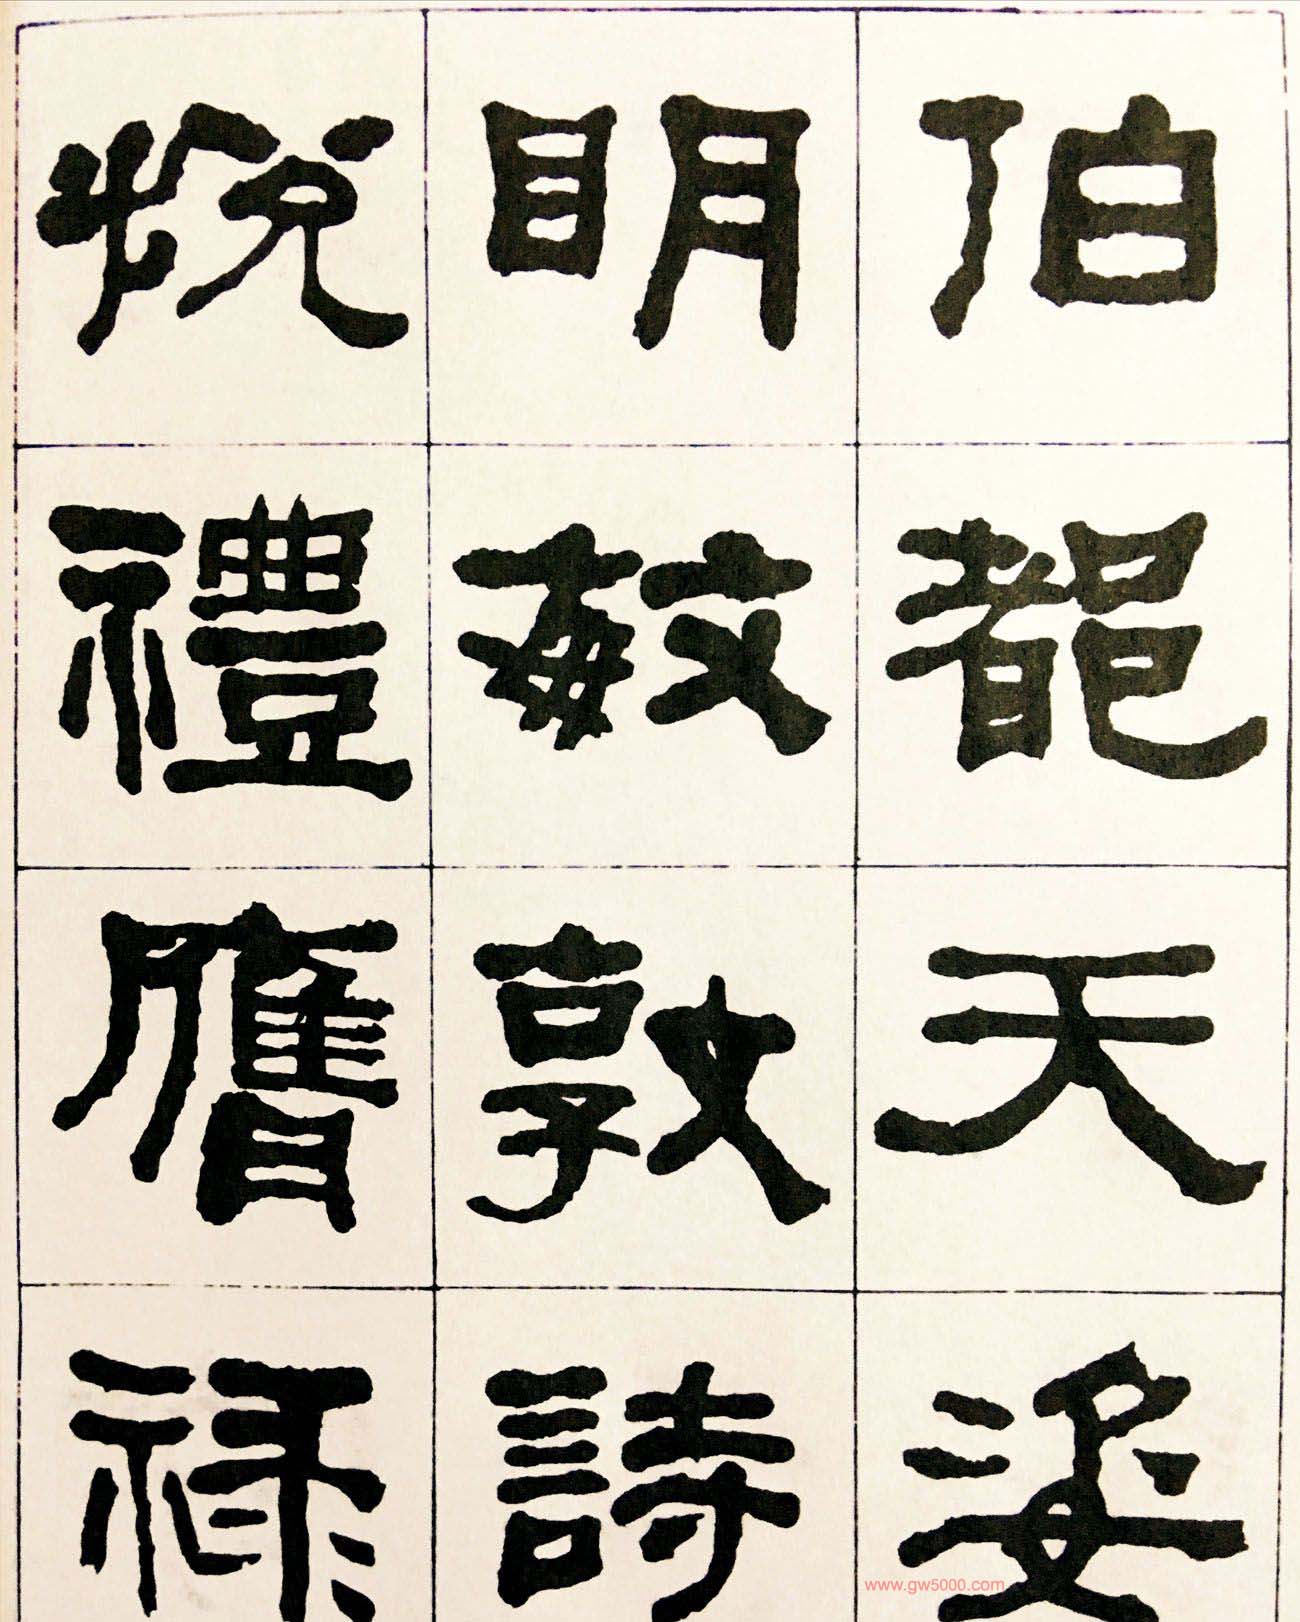 伯都天姿
明敏敦詩
悅禮膺祿
www.gw5000.com